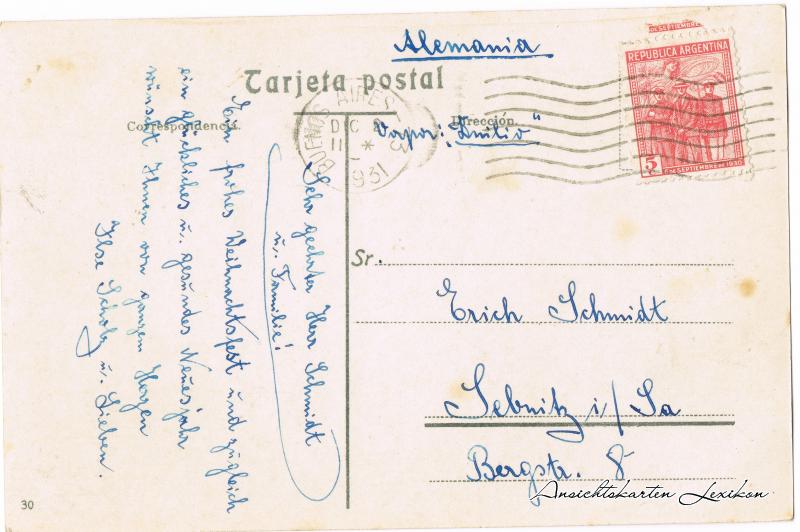 Alemania
Tarjeta postal
Correspondencia.
Dirección.
Vapor: "Duilio"
DE SEPTIEMBRE
REPUBLICA ARGENTINA
5
6 DE SEPTIEMBRE DE 1930
BUENOS AIRES
DIC
11
1931
Sehr geehrter Herr Schmidt
u. Familie!
Ein frohes Weihnachtsfest und zugleich
ein glückliches u. gesundes Neuesjahr
wünscht Ihnen von ganzem Herzen
Ilse Scholz u. Lieben.
Sr.
Erich Schmidt
Sebnitz i/Sa
Bergstr. 8
30
Ansichtskarten Lexikon